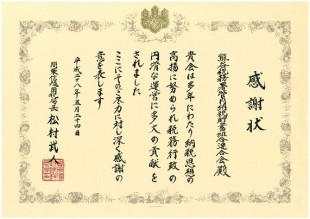 感謝状
熊谷税務署管内納税貯蓄組合連合会殿
貴会は多年にわたり納税思想の
高揚に努められ税務行政の
円滑な運営に多大の貢献を
されました
ここにそのご尽力に対し深く感謝の
意を表します
平成二十八年五月二十四日
関東信越国税局長 松村武人